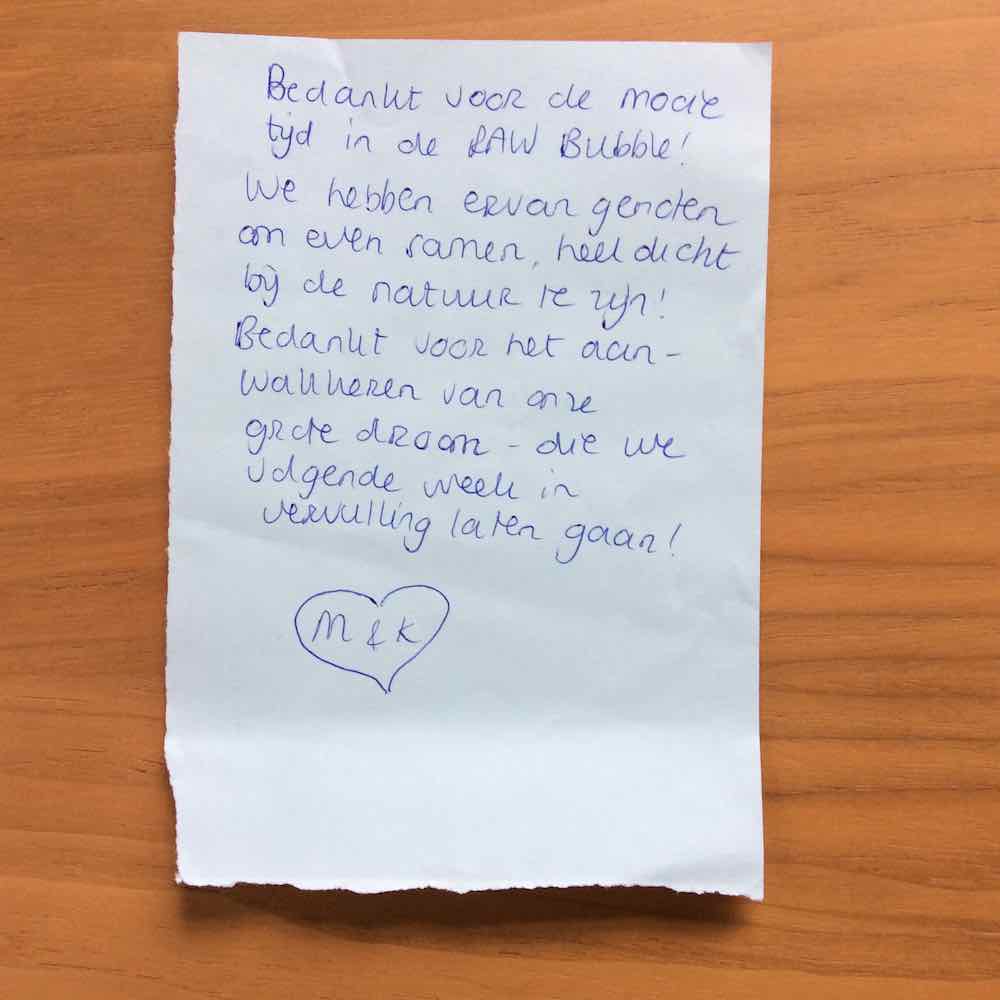 Bedankt voor de mooie
tijd in de RAW Bubble!
We hebben ervan genoten
om even samen, heel dicht
bij de natuur te zijn!
Bedankt voor het aan-
wakkeren van onze
grote droom - die we
volgende week in
vervulling laten gaan!
M & K